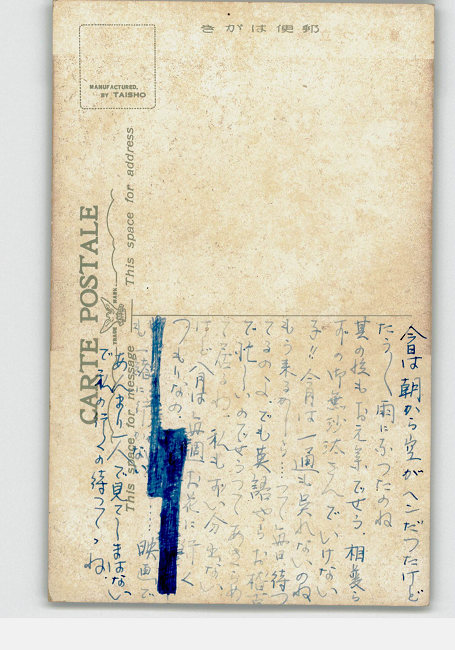 きがは便郵
MANUFACTURED.
BY TAISHO
CARTE POSTALE
TRADE MARK
This space for address
This space for message
今日は朝から空がヘンだつたけど
たうとう雨になつたのね
其の後もお元気でせう 相変ら
ずの御無沙汰さんでいけない
子!! 今月は一通も呉れないのね
もう来るかしら……つて毎日待つ
てるの、でも英語やらお稽古
で忙しいのでせうつてあきらめ
て居 わ、私も 分出ない
けど 八月は毎週お花に行く
つもりなの、
も 行 ない …… 映画で
あんまり一人で見てしまはない
で私の行くの待つてつね